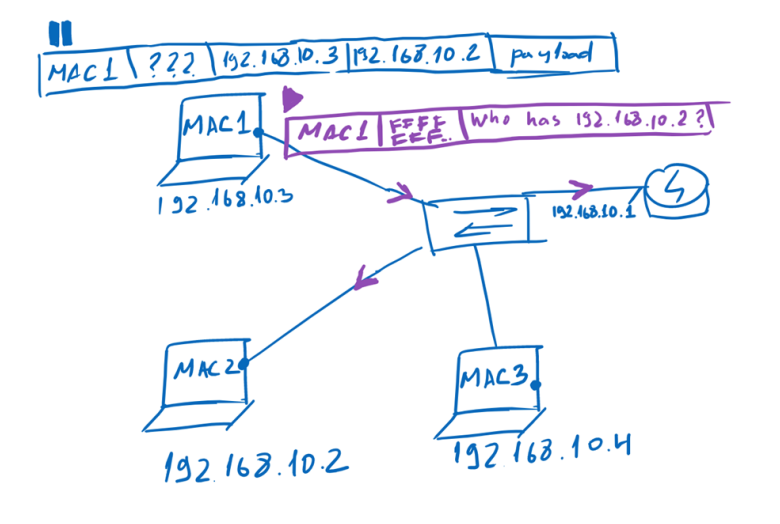 MAC1 ??? 192.168.10.3 192.168.10.2 payload
MAC1
MAC1 FFFF Who has 192.168.10.2?
FFF..
192.168.10.3
192.168.10.1
MAC2
MAC3
192.168.10.2
192.168.10.4